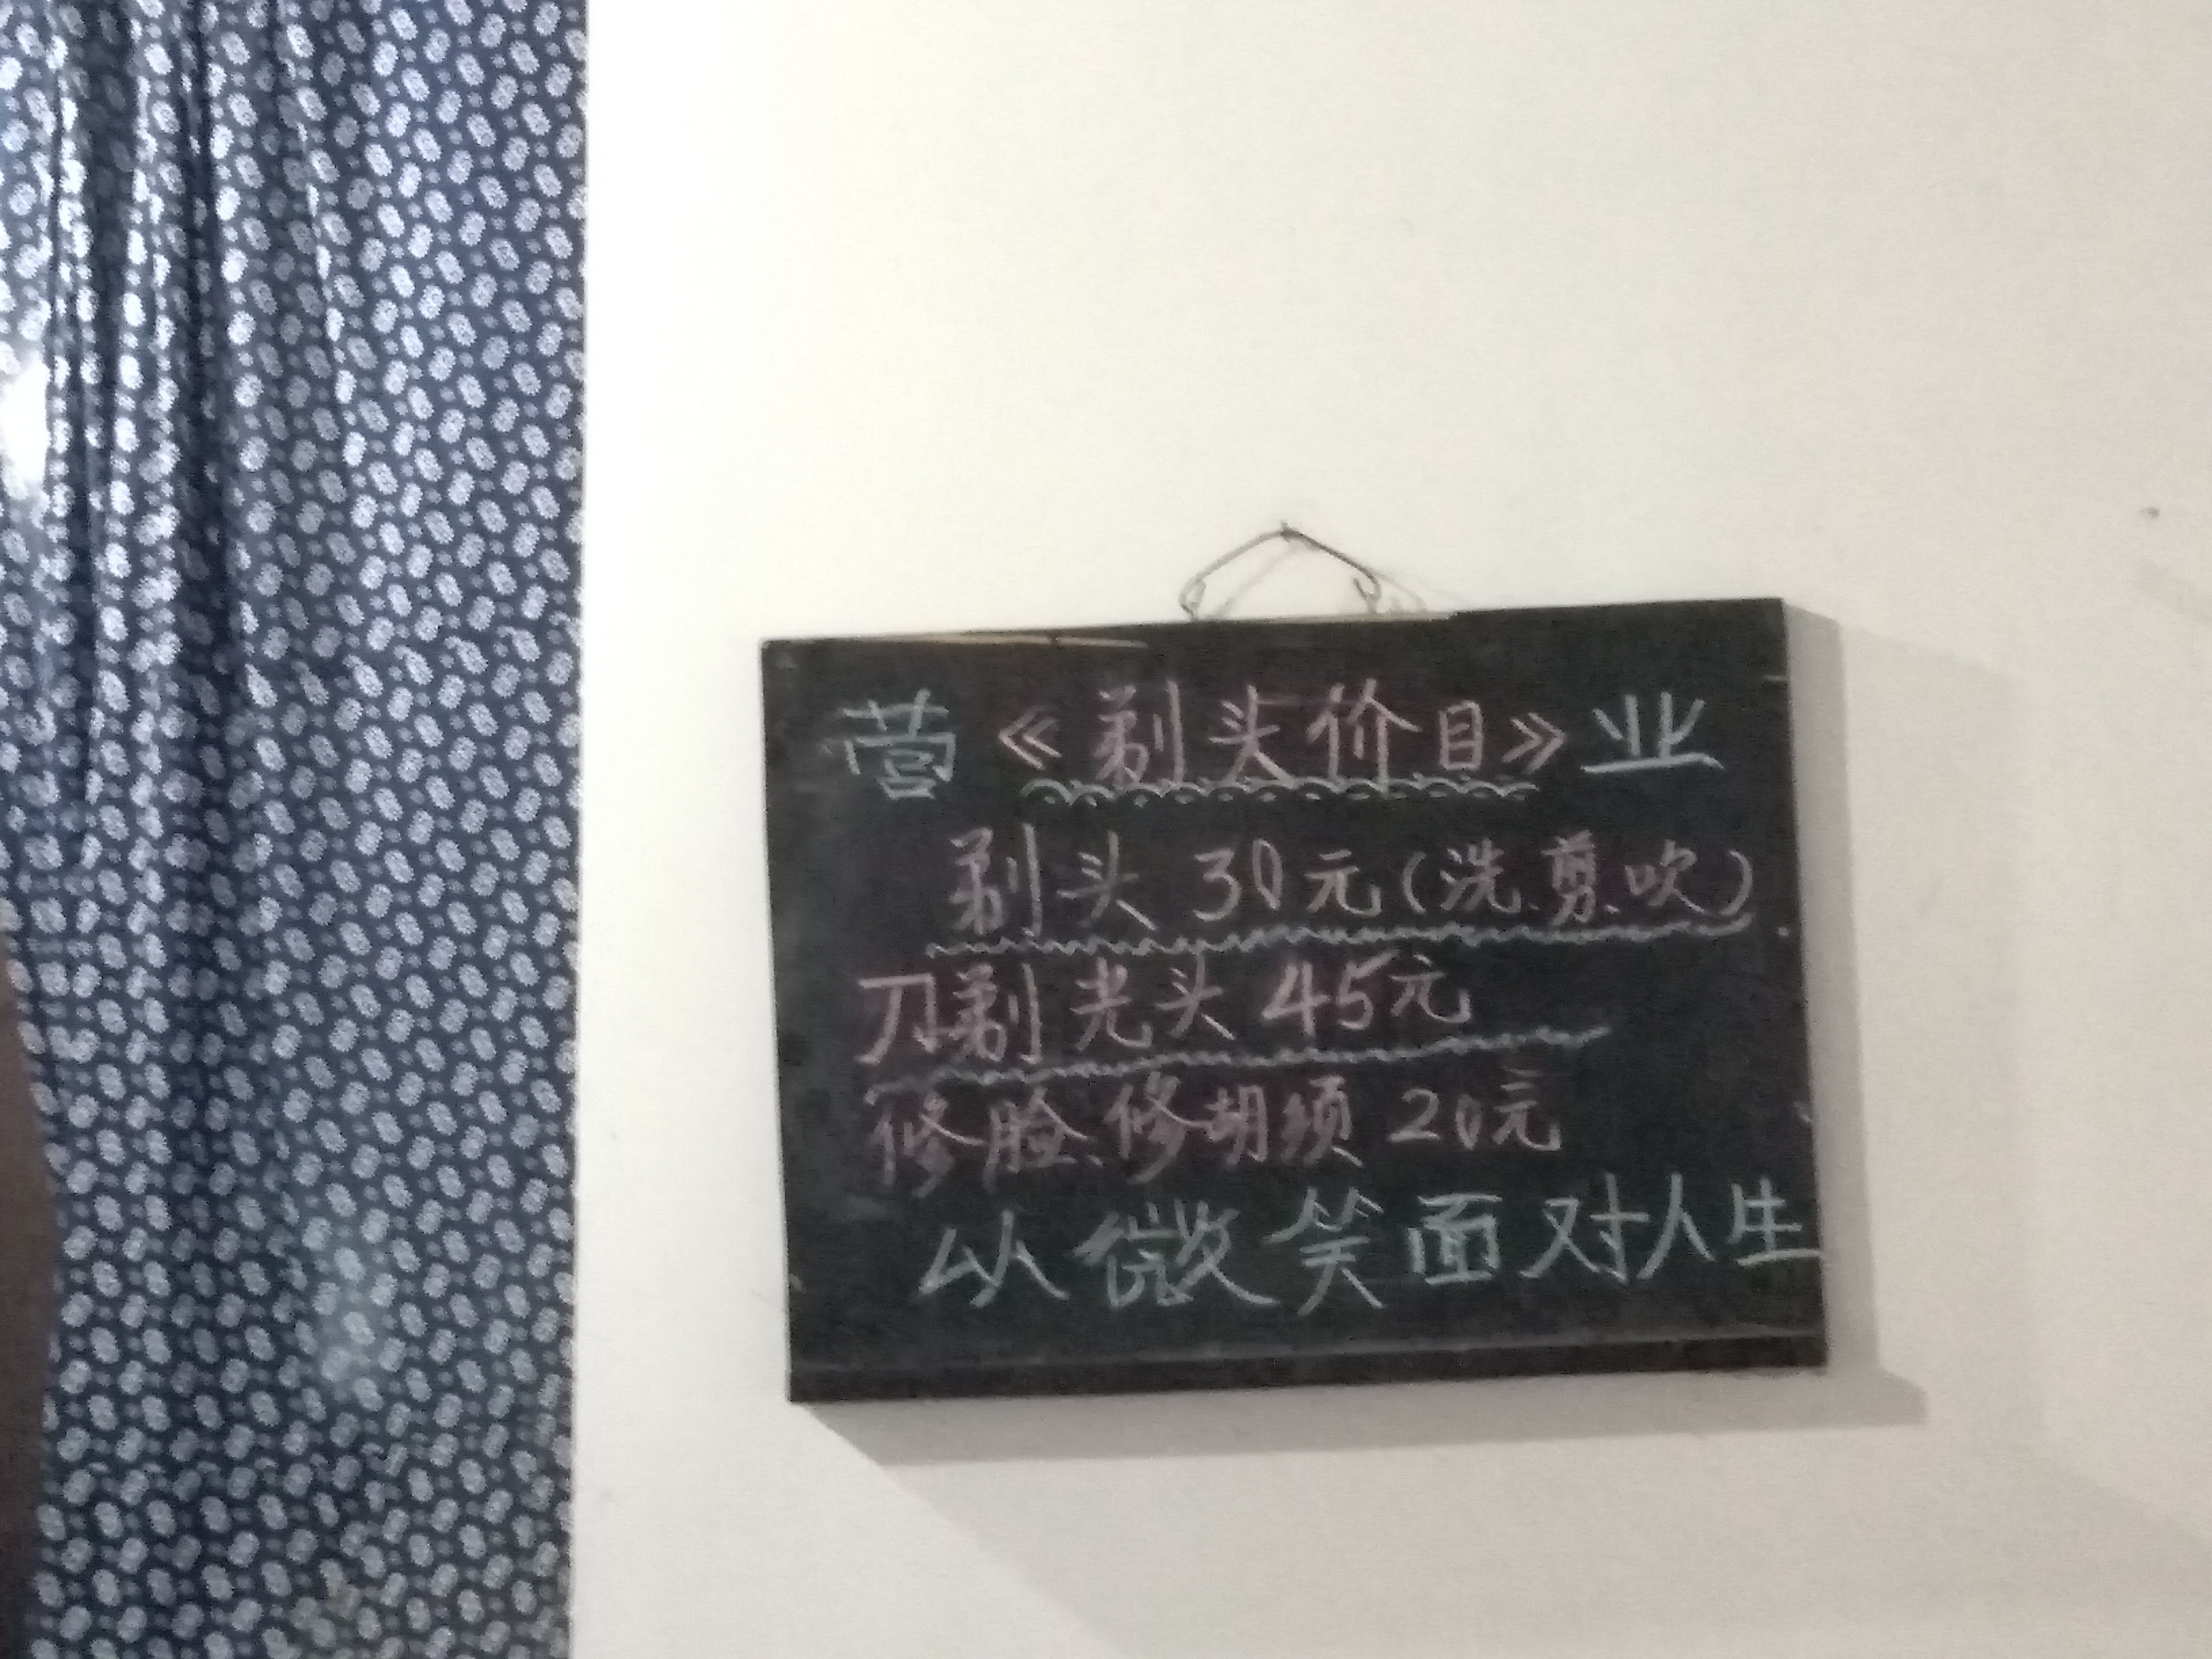 营《剃头价目》业
剃头 30元(洗.剪.吹)
刀剃光头 45元
修脸、修胡须 20元
以微笑面对人生